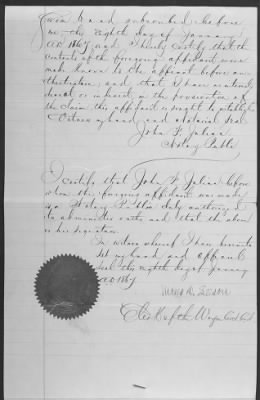 Sworn to and subscribed before
me this eighth day of January
AD 1867 and I hereby certify that the
contents of the foregoing affidavit were
made known to the affiant before
and that I have no interest
direct or indirect in the prosecution of
the claim this affidavit is sought to establish
Witness my hand and notarial Seal
John F. Julian
Notary Public
I certify that John F. Julian before
whom the foregoing affidavit was made
is a Notary Public duly authorized
to administer oaths and that the above
is his signature
In witness whereof I have hereunto
set my hand and official
seal this eighth day of January
AD 1867
Clerk